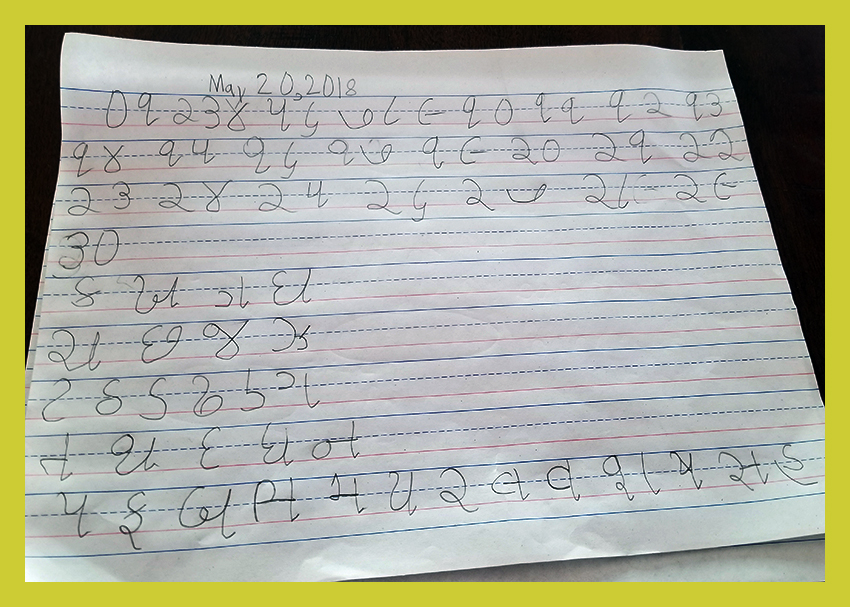 May 20, 2018
૦ ૧ ૨ ૩ ૪ ૫ ૬ ૭ ૮ ૯ ૧૦ ૧૧ ૧૨ ૧૩
૧૪ ૧૫ ૧૬ ૧૭ ૧૯ ૨૦ ૨૧ ૨૨
૨૩ ૨૪ ૨૫ ૨૬ ૨૭ ૨૮ ૨૯
૩૦
ક ખ ગ ઘ
ચ છ જ ઝ
ટ ઠ ડ ઢ ણ
ત થ દ ધ ન
પ ફ બ ભ મ ય ર લ વ શ ષ સ હ